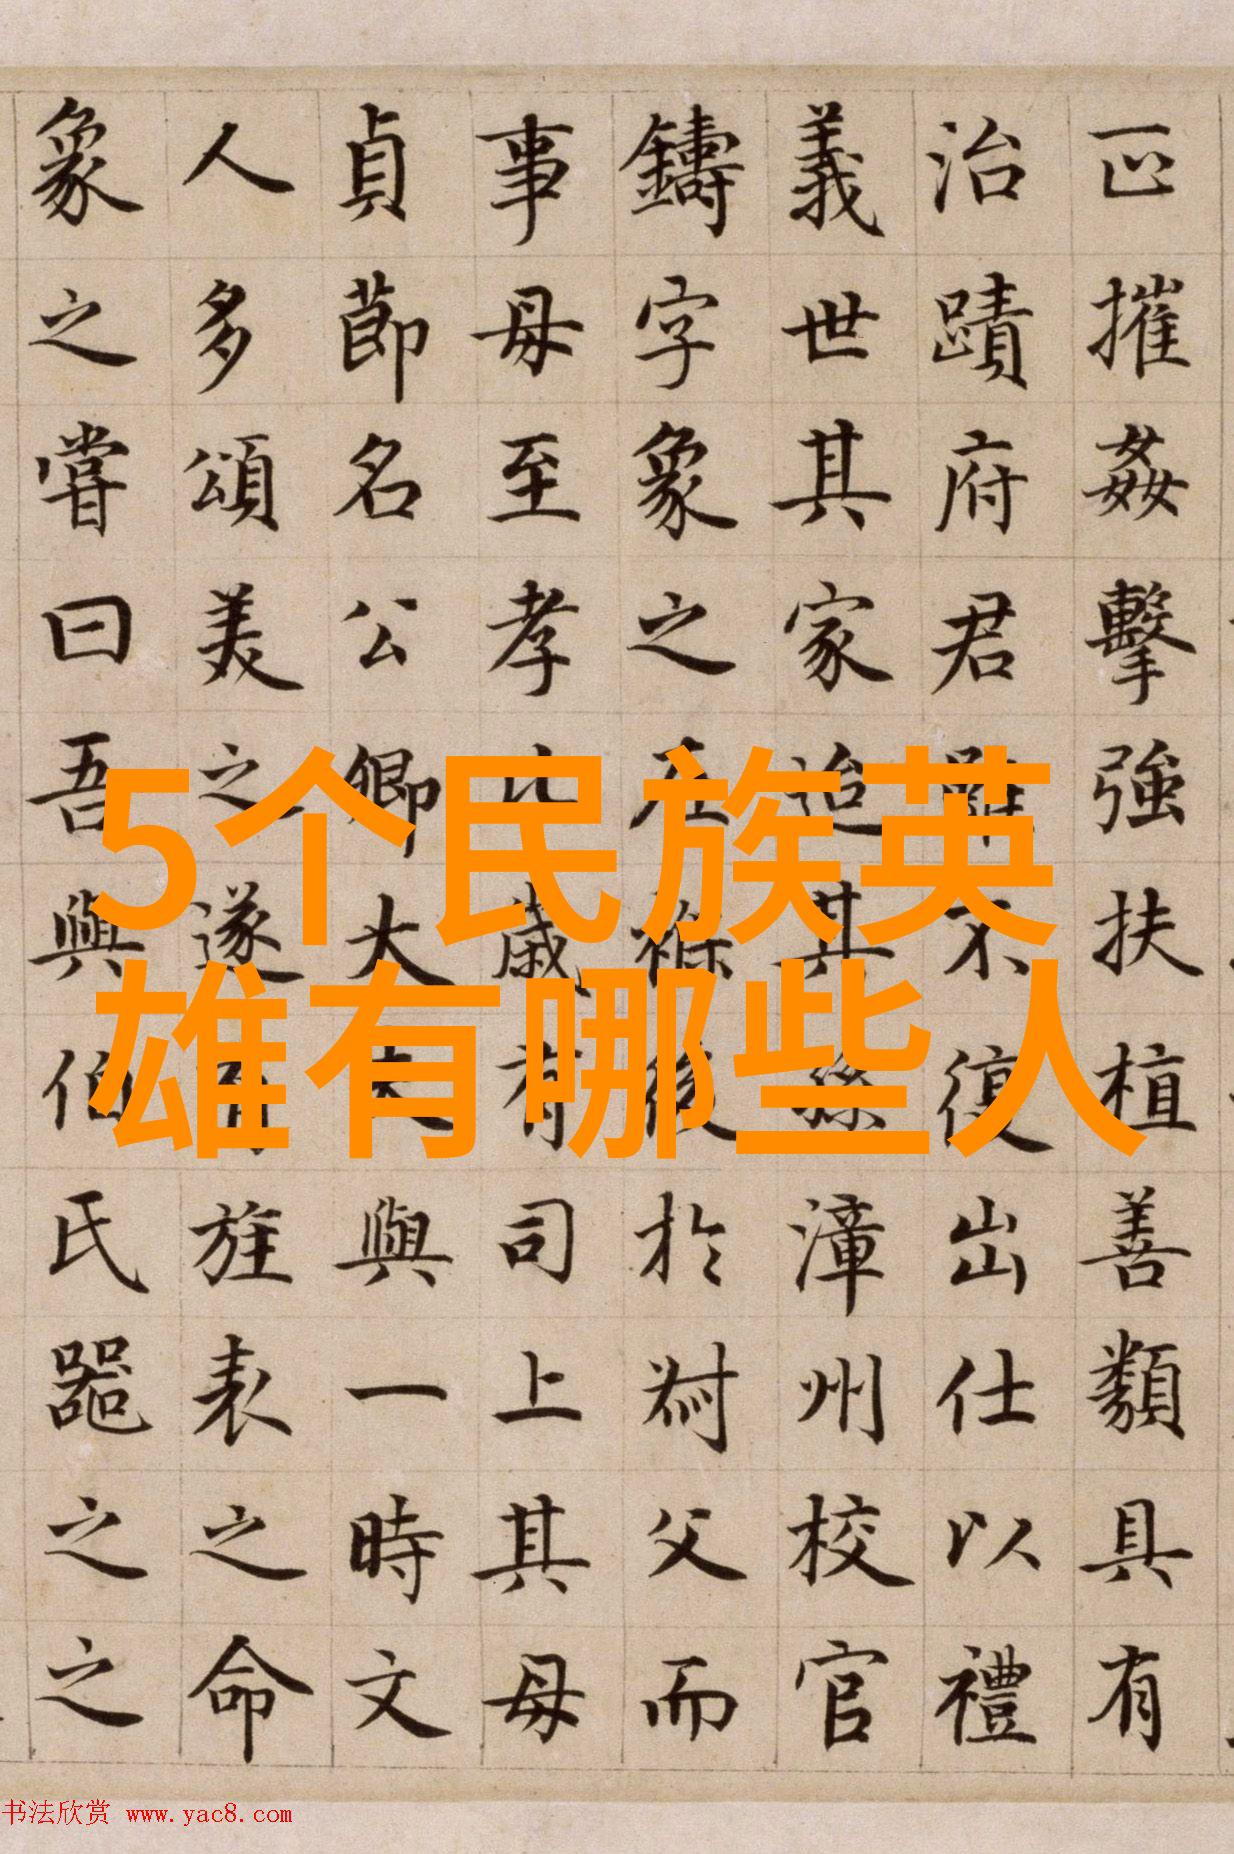 5个民族英
雄有哪些人
正摧姦擊強扶植善類具有
治蹟府君雖不復出仕以禮
義世其家迨其孫漳州校官
鑄字象之在褓後於嗣父而
事母至孝有司上其母
貞節名公卿大夫與一時文
人多頌美之遂有旌表之命
象之嘗曰吾與伯氏器之之
书法欣赏 www.yac8.com